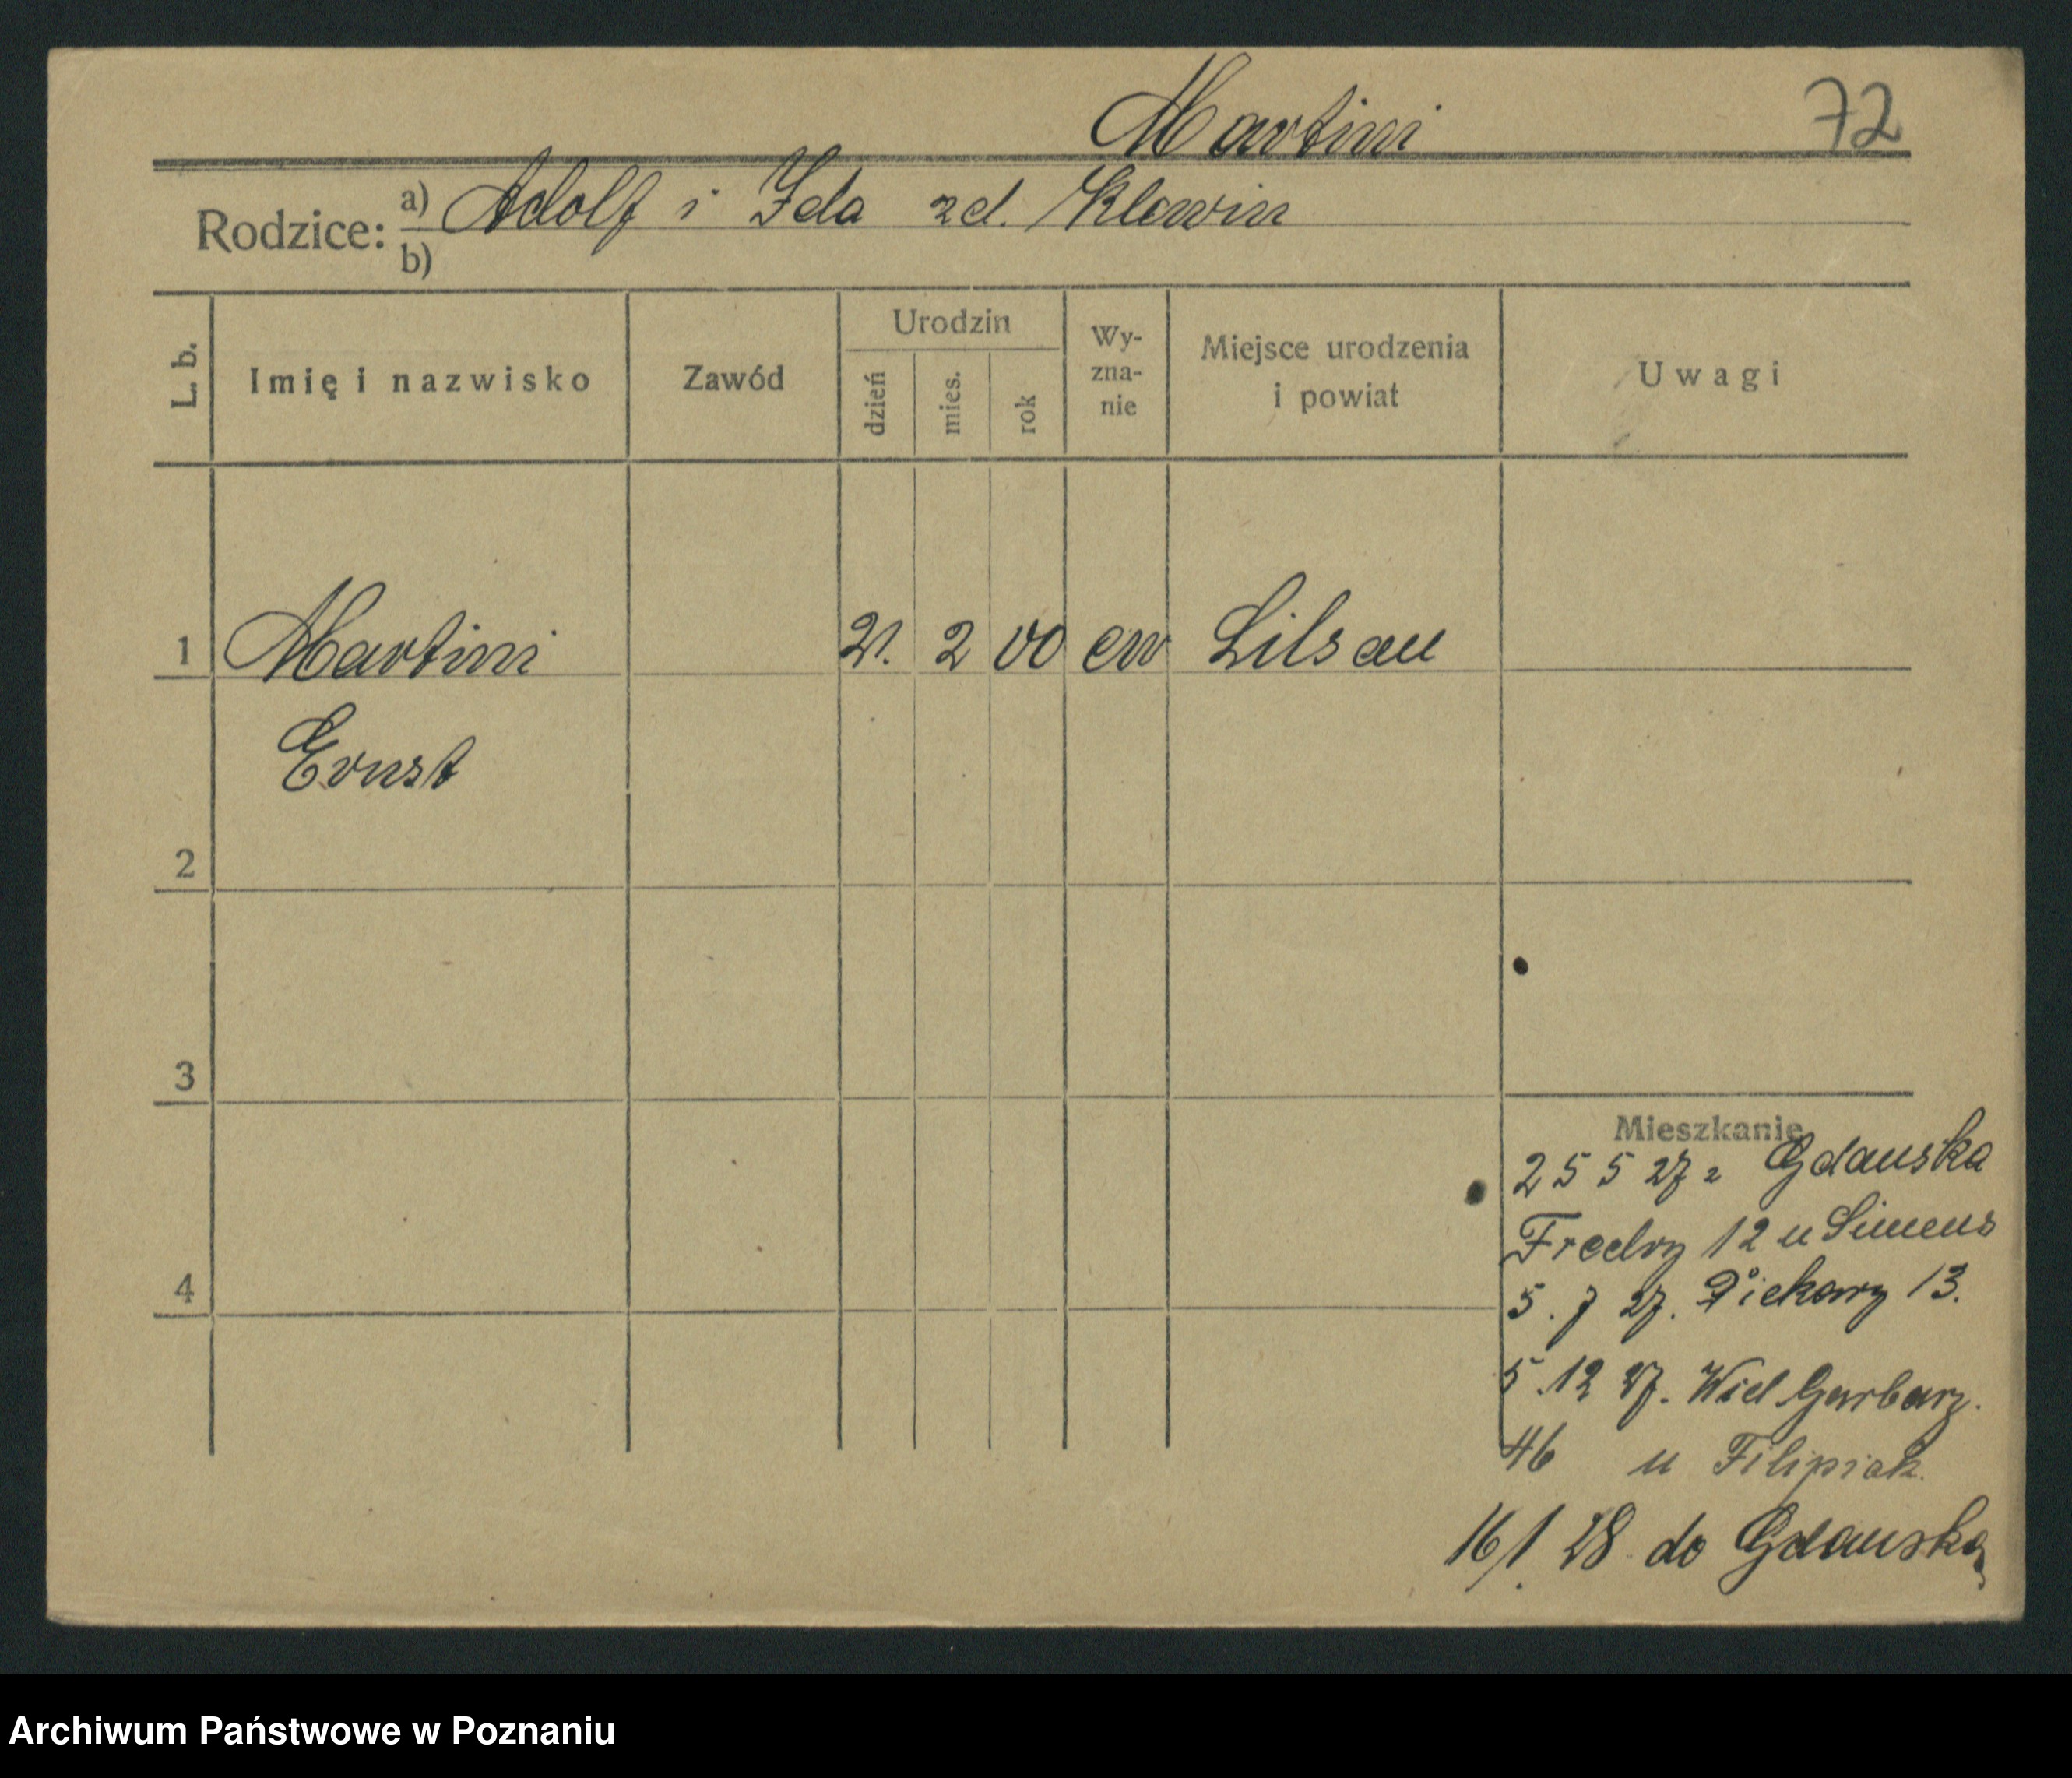 Martini 72
Rodzice: a) Adolf i Ida zd. Klewin
b)
L. b. Imię i nazwisko Zawód Urodzin dzień mies. rok Wy-zna-nie Miejsce urodzenia i powiat Uwagi
1 Martini 21. 2 00 ew Lilsau
Ernst
2
3
Mieszkanie
25 5 27 z Gdańska
Fredry 12 u Simens
4
5. 7 27. Piekary 13.
5. 12 27. Wiel Garbary.
46 u Filipiak.
16/1. 28. do Gdańska
Archiwum Państwowe w Poznaniu